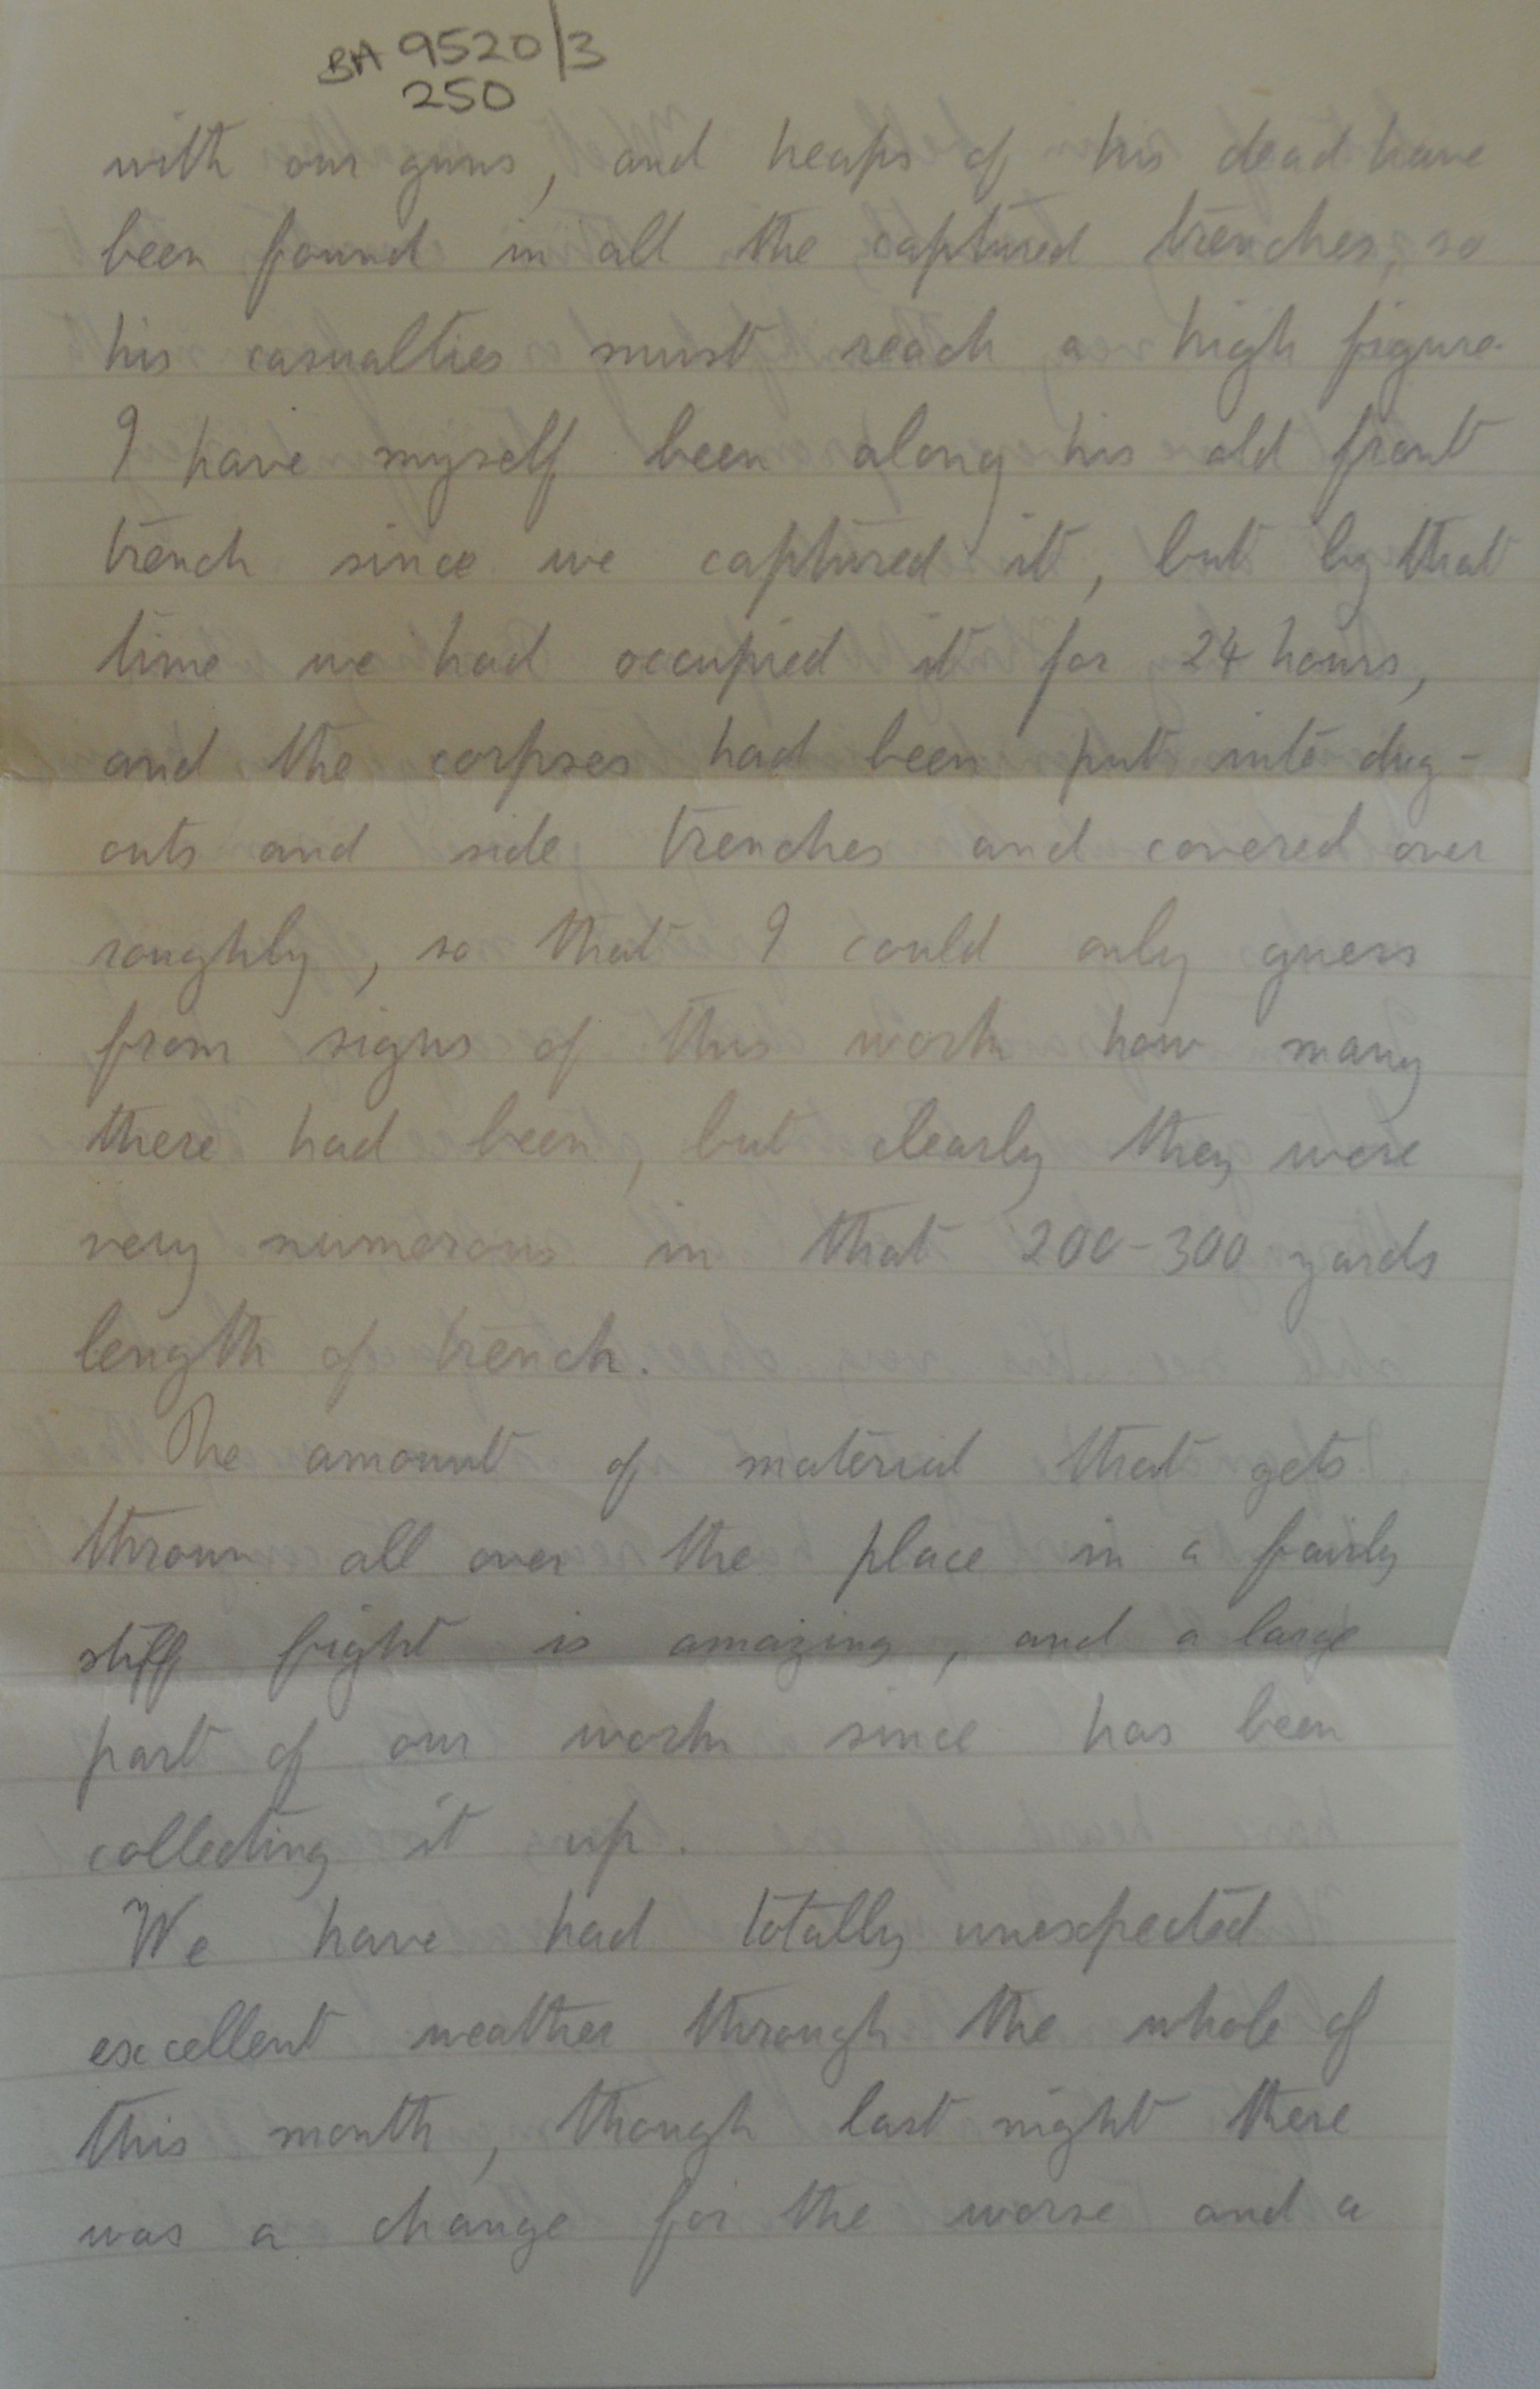 BA 9520/3
250
with our guns, and heaps of his dead have
been found in all the captured trenches, so
his casualties must reach a high figure.
I have myself been along his old front
trench since we captured it, but by that
time we had occupied it for 24 hours,
and the corpses had been put into dug-
outs and side trenches and covered over
roughly, so that I could only guess
from signs of this work how many
there had been, but clearly they were
very numerous in that 200-300 yards
length of trench.
The amount of material that gets
thrown all over the place in a fairly
stiff fight is amazing, and a large
part of our work since has been
collecting it up.
We have had totally unexpected
excellent weather through the whole of
this month, though last night there
was a change for the worse and a